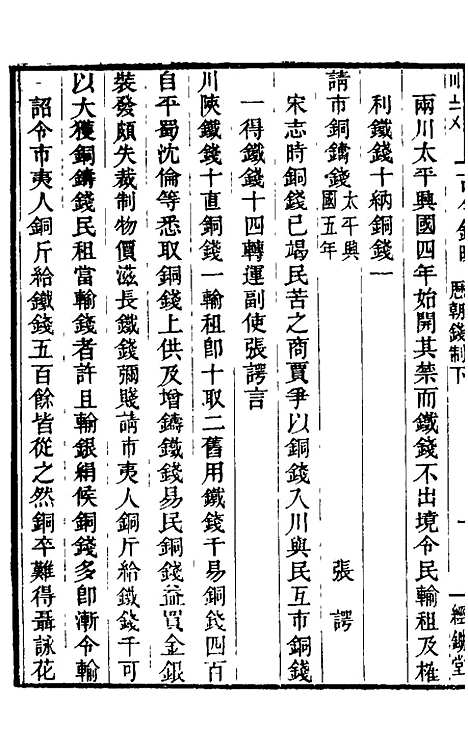 歷朝錢制下
經鉏堂
兩川太平興國四年始開其禁而鐵錢不出境令民輸租及榷
利鐵錢十納銅錢一
請市銅鑄錢太平興國五年 張諤
宋志時銅錢已竭民苦之商賈爭以銅錢入川與民互市銅錢
一得鐵錢十四轉運副使張諤言
川陜鐵錢十直銅錢一輸租卽十取二舊用鐵錢千易銅錢四百
自平蜀沈倫等悉取銅錢上供及增鑄鐵錢易民銅錢益買金銀
裝發頗失裁制物價滋長鐵錢彌賤請市夷人銅斤給鐵錢千可
以大獲銅鑄錢民租當輸錢者許且輸銀絹候銅錢多卽漸令輸
詔令市夷人銅斤給鐵錢五百餘皆從之然銅卒難得聶詠花